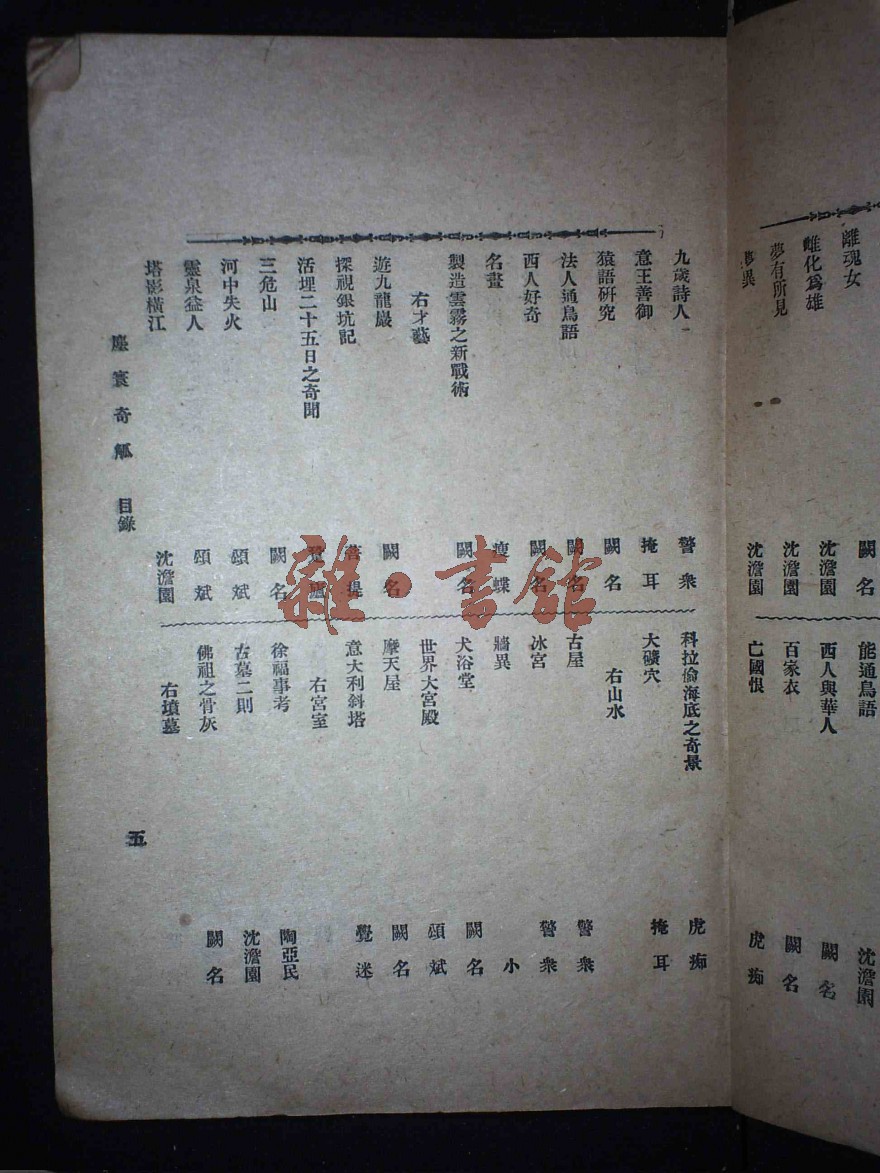 離魂女 闕名
雌化爲雄 沈澹園
夢有所見 沈澹園
夢異 沈澹園
能通鳥語 沈澹園
西人與華人 闕名
百家衣 闕名
亡國恨 虎痴
九歲詩人 警衆
意王善御 掩耳
猿語研究 闕名
法人通鳥語 闕名
西人好奇 闕名
名畫 瘦蝶
製造雲霧之新戰術 闕名
右才藝
遊九龍巖 闕名
探視銀坑記 菩提
活埋二十五日之奇聞
三危山 闕名
河中失火 頌斌
靈泉益人 頌斌
塔影橫江 沈澹園
科拉倫海底之奇景 虎痴
大礦穴 掩耳
右山水
古屋 警衆
冰宮 警衆
牆異 小
犬浴堂 闕名
世界大宮殿 頌斌
摩天屋 闕名
意大利斜塔 覺迷
右宮室
徐福事考 陶亞民
古墓二則 沈澹園
佛祖之骨灰 闕名
右墳墓
塵寰奇觚 目錄
五
雜·書館